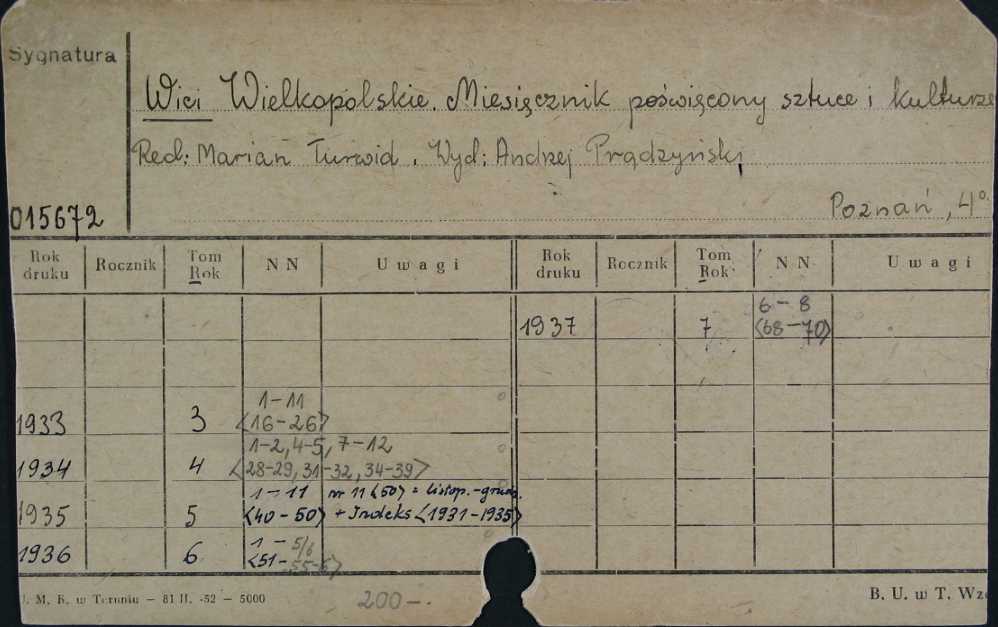 Sygnatura
Wici Wielkopolskie. Miesięcznik poświęcony sztuce i kulturze
Red: Marian Turwid. Wyd: Andrzej Prądzyński
Poznań, 4°
015672
Rok druku Rocznik Tom Rok NN Uwagi Rok druku Rocznik Tom Rok NN Uwagi
1937 7 6-8 <68-70>
1933 3 1-11 <16-26>
1934 4 1-2, 4-5, 7-12 <28-29, 31-32, 34-39>
1935 5 1-11 <40-50> nr 11 <50> = listop.-grudz. + Indeks <1931-1935>
1936 6 1-5/6 <51-55-6>
U. M. K. w Toruniu — 81 II. -52 — 5000
200-.
B. U. w T. Wzó